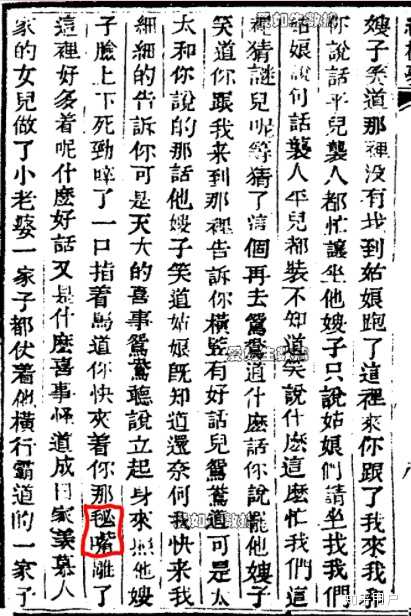 嫂子笑道那裡没有找到姑娘跑了這裡來你跟了我來我
你說話平兒襲人都忙讓坐他嫂子只說姑娘們請坐找我們
姑娘說句話襲人平兒都裝不知道笑說什麽這麽忙我們這
裡猜謎兒呢等猜了這個再去鴛鴦道什麽話你說罷他嫂子
笑道你跟我来到那裡告訴你橫竪有好話兒鴛鴦道可是太
太和你說的那話他嫂子笑道姑娘既知道還奈何我快來我
細細的告訴你可是天大的喜事鴛鴦聽說立起身來照他嫂
子臉上下死勁啐了一口指着駡道你快夾着你那𣬠嘴離了
這裡好多着呢什麽好話又是什麽喜事怪道成日家羡慕人
家的女兒做了小老婆一家子都仗着他橫行霸道的一家子
知乎用户